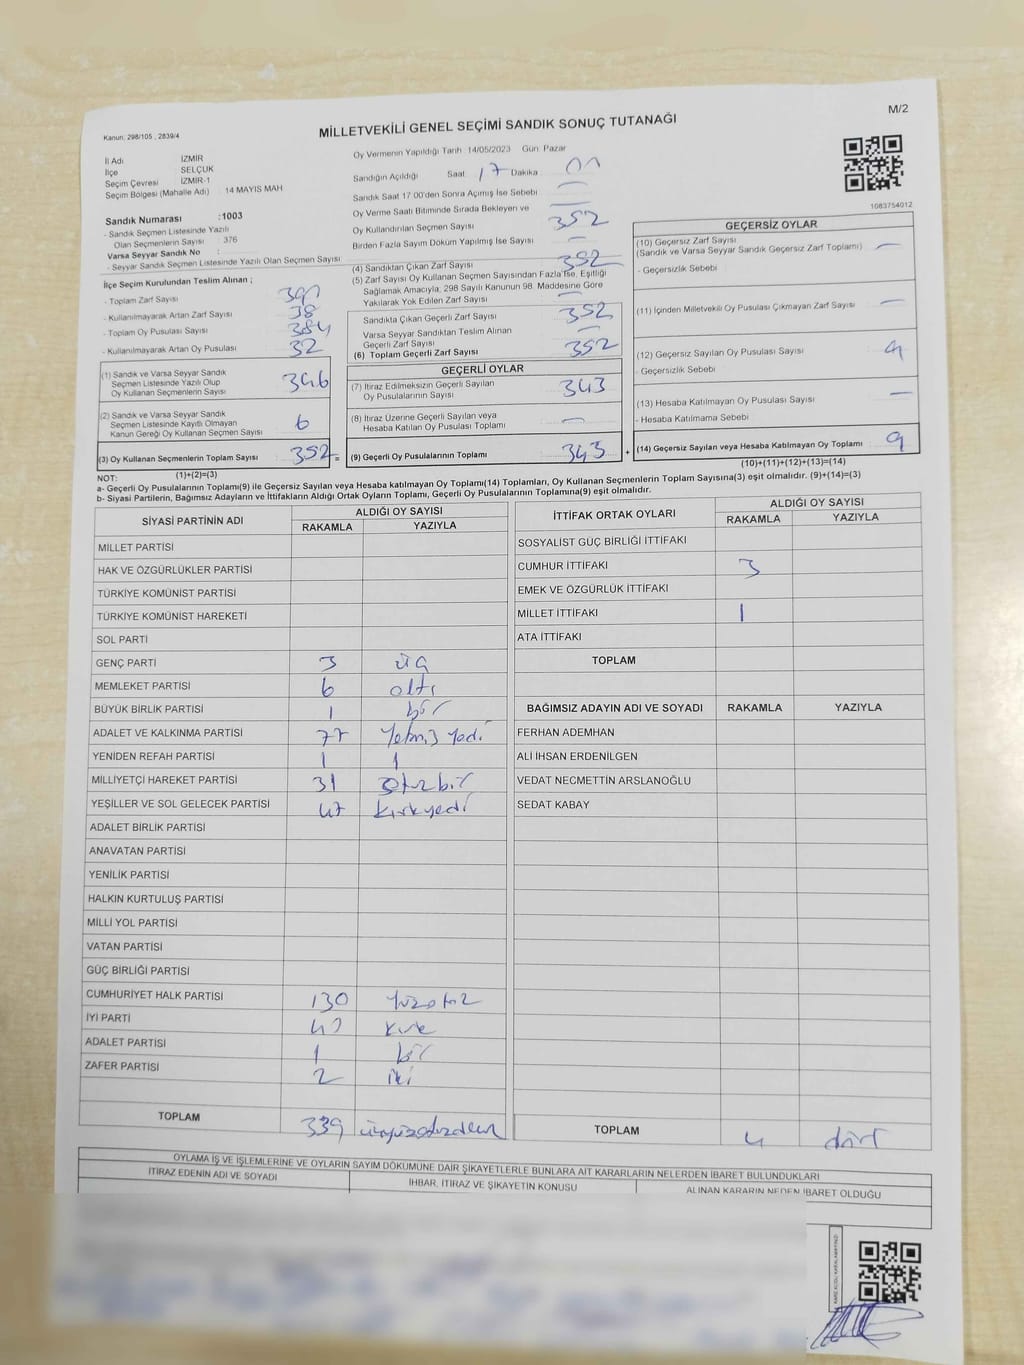 M/2
Kanun, 298/105 , 2839/4
MİLLETVEKİLİ GENEL SEÇİMİ SANDIK SONUÇ TUTANAĞI
İl Adı İZMİR
İlçe SELÇUK
Seçim Çevresi İZMİR-1
Seçim Bölgesi (Mahalle Adı) 14 MAYIS MAH
Sandık Numarası :1003
- Sandık Seçmen Listesinde Yazılı
Olan Seçmenlerin Sayısı : 376
Varsa Seyyar Sandık No :
- Seyyar Sandık Seçmen Listesinde Yazılı Olan Seçmen Sayısı
İlçe Seçim Kurulundan Teslim Alınan ;
- Toplam Zarf Sayısı
- Kullanılmayarak Artan Zarf Sayısı 38
- Toplam Oy Pusulası Sayısı 384
- Kullanılmayarak Artan Oy Pusulası 32
(1) Sandık ve Varsa Seyyar Sandık
Seçmen Listesinde Yazılı Olup
Oy Kullanan Seçmenlerin Sayısı 346
(2) Sandık ve Varsa Seyyar Sandık
Seçmen Listesinde Kayıtlı Olmayan
Kanun Gereği Oy Kullanan Seçmen Sayısı 6
(3) Oy Kullanan Seçmenlerin Toplam Sayısı 352 =
(1)+(2)=(3)
Oy Vermenin Yapıldığı Tarih :14/05/2023 Gün: Pazar
Sandığın Açıldığı Saat 17 Dakika
Sandık Saat 17 00'den Sonra Açımış İse Sebebi —
Oy Verme Saati Bitiminde Sırada Bekleyen ve
Oy Kullandırılan Seçmen Sayısı 352
Birden Fazla Sayım Döküm Yapılmış İse Sayısı —
(4) Sandıktan Çıkan Zarf Sayısı 352
(5) Zarf Sayısı Oy Kullanan Seçmen Sayısından Fazla İse, Eşitliği
Sağlamak Amacıyla, 298 Sayılı Kanunun 98. Maddesine Göre
Yakılarak Yok Edilen Zarf Sayısı —
Sandıkta Çıkan Geçerli Zarf Sayısı 352
Varsa Seyyar Sandıktan Teslim Alınan
Geçerli Zarf Sayısı —
(6) Toplam Geçerli Zarf Sayısı 352
GEÇERLİ OYLAR
(7) İtiraz Edilmeksizin Geçerli Sayılan
Oy Pusulalarının Sayısı 343
(8) İtiraz Üzerine Geçerli Sayılan veya
Hesaba Katılan Oy Pusulası Toplamı —
(9) Geçerli Oy Pusulalarının Toplamı 343 +
1083754012
GEÇERSİZ OYLAR
(10) Geçersiz Zarf Sayısı
(Sandık ve Varsa Seyyar Sandık Geçersiz Zarf Toplamı) —
- Geçersizlik Sebebi
(11) İçinden Milletvekili Oy Pusulası Çıkmayan Zarf Sayısı —
(12) Geçersiz Sayılan Oy Pusulası Sayısı 9
- Geçersizlik Sebebi
(13) Hesaba Katılmayan Oy Pusulası Sayısı —
- Hesaba Katılmama Sebebi
(14) Geçersiz Sayılan veya Hesaba Katılmayan Oy Toplamı 9
(10)+(11)+(12)+(13)=(14)
NOT:
a- Geçerli Oy Pusulalarının Toplamı(9) ile Geçersiz Sayılan veya Hesaba Katılmayan Oy Toplamı(14) Toplamları, Oy Kullanan Seçmenlerin Toplam Sayısına(3) eşit olmalıdır. (9)+(14)=(3)
b- Siyasi Partilerin, Bağımsız Adayların ve İttifakların Aldığı Ortak Oyların Toplamı, Geçerli Oy Pusulalarının Toplamına(9) eşit olmalıdır.
SİYASİ PARTİNİN ADI ALDIĞI OY SAYISI
RAKAMLA YAZIYLA
MİLLET PARTİSİ
HAK VE ÖZGÜRLÜKLER PARTİSİ
TÜRKİYE KOMÜNİST PARTİSİ
TÜRKİYE KOMÜNİST HAREKETİ
SOL PARTİ
GENÇ PARTİ 3 üç
MEMLEKET PARTİSİ 6 altı
BÜYÜK BİRLİK PARTİSİ 1 bir
ADALET VE KALKINMA PARTİSİ 77 Yetmiş Yedi
YENİDEN REFAH PARTİSİ 1 1
MİLLİYETÇİ HAREKET PARTİSİ 31 otuzbir
YEŞİLLER VE SOL GELECEK PARTİSİ 47 kırkyedi
ADALET BİRLİK PARTİSİ
ANAVATAN PARTİSİ
YENİLİK PARTİSİ
HALKIN KURTULUŞ PARTİSİ
MİLLİ YOL PARTİSİ
VATAN PARTİSİ
GÜÇ BİRLİĞİ PARTİSİ
CUMHURİYET HALK PARTİSİ 130 Yüzotuz
İYİ PARTİ kırk
ADALET PARTİSİ 1 bir
ZAFER PARTİSİ 2 iki
TOPLAM 339
İTTİFAK ORTAK OYLARI ALDIĞI OY SAYISI
RAKAMLA YAZIYLA
SOSYALİST GÜÇ BİRLİĞİ İTTİFAKI
CUMHUR İTTİFAKI 3
EMEK VE ÖZGÜRLÜK İTTİFAKI
MİLLET İTTİFAKI 1
ATA İTTİFAKI
TOPLAM
BAĞIMSIZ ADAYIN ADI VE SOYADI RAKAMLA YAZIYLA
FERHAN ADEMHAN
ALİ İHSAN ERDENİLGEN
VEDAT NECMETTİN ARSLANOĞLU
SEDAT KABAY
TOPLAM 4 dört
OYLAMA İŞ VE İŞLEMLERİNE VE OYLARIN SAYIM DÖKÜMÜNE DAİR ŞİKAYETLERLE BUNLARA AİT KARARLARIN NELERDEN İBARET BULUNDUKLARI
İTİRAZ EDENİN ADI VE SOYADI İHBAR, İTİRAZ VE ŞİKAYETİN KONUSU ALINAN KARARIN NEDEN İBARET OLDUĞU